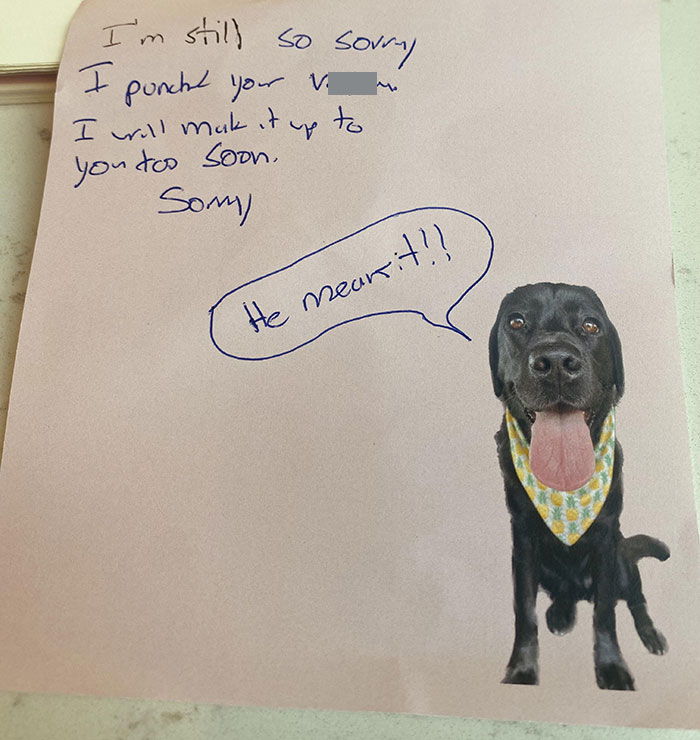 I'm still so sorry
I punched your
I will make it up to
you too soon.
Sorry
He means it!!